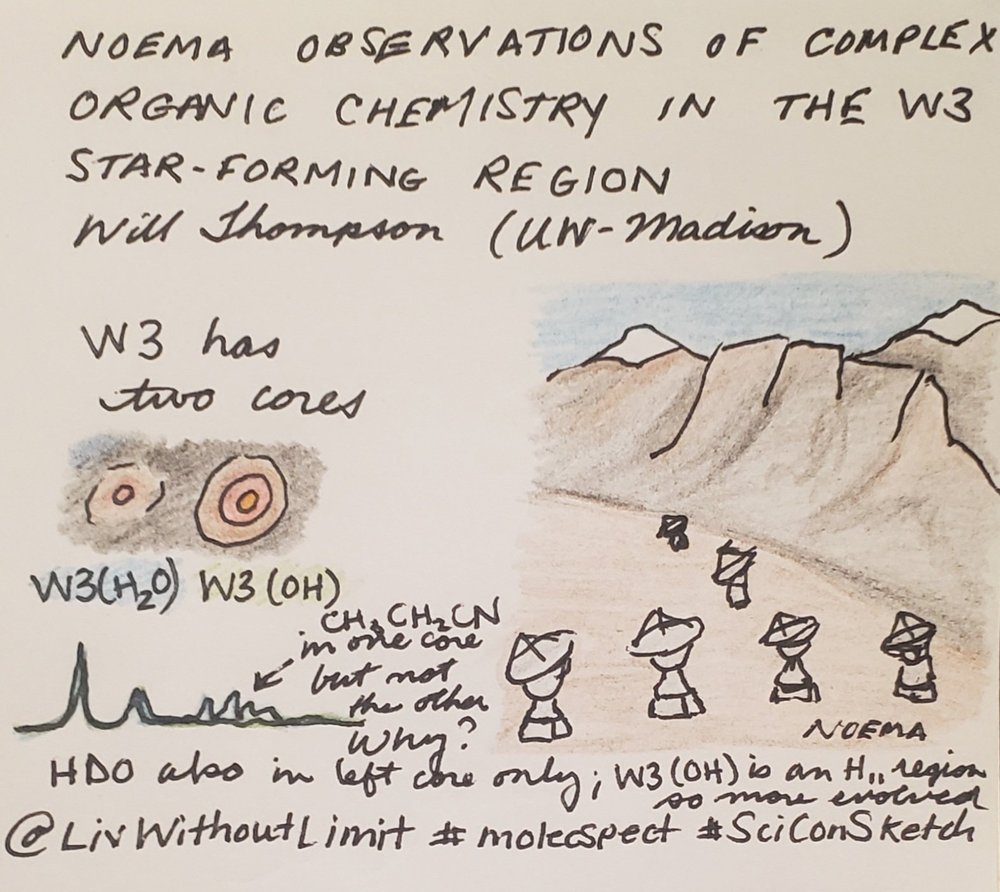 NOEMA OBSERVATIONS OF COMPLEX
ORGANIC CHEMISTRY IN THE W3
STAR-FORMING REGION
Will Thompson (UW-Madison)
W3 has
two cores
W3(H₂O) W3(OH)
CH₃CH₂CN
in one core
but not
the other
Why?
NOEMA
HDO also in left core only; W3(OH) is an H₁₁ region
so more evolved
@LivWithoutLimit #molecspect #SciConSketch